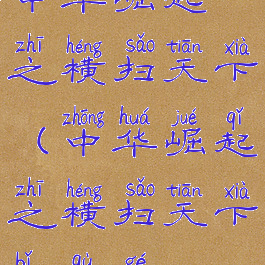 中华崛起
zhī héng sǎo tiān xià
之横扫天下
zhōng huá jué qǐ
（中华崛起
zhī héng sǎo tiān xià
之横扫天下
bǐ qù gé